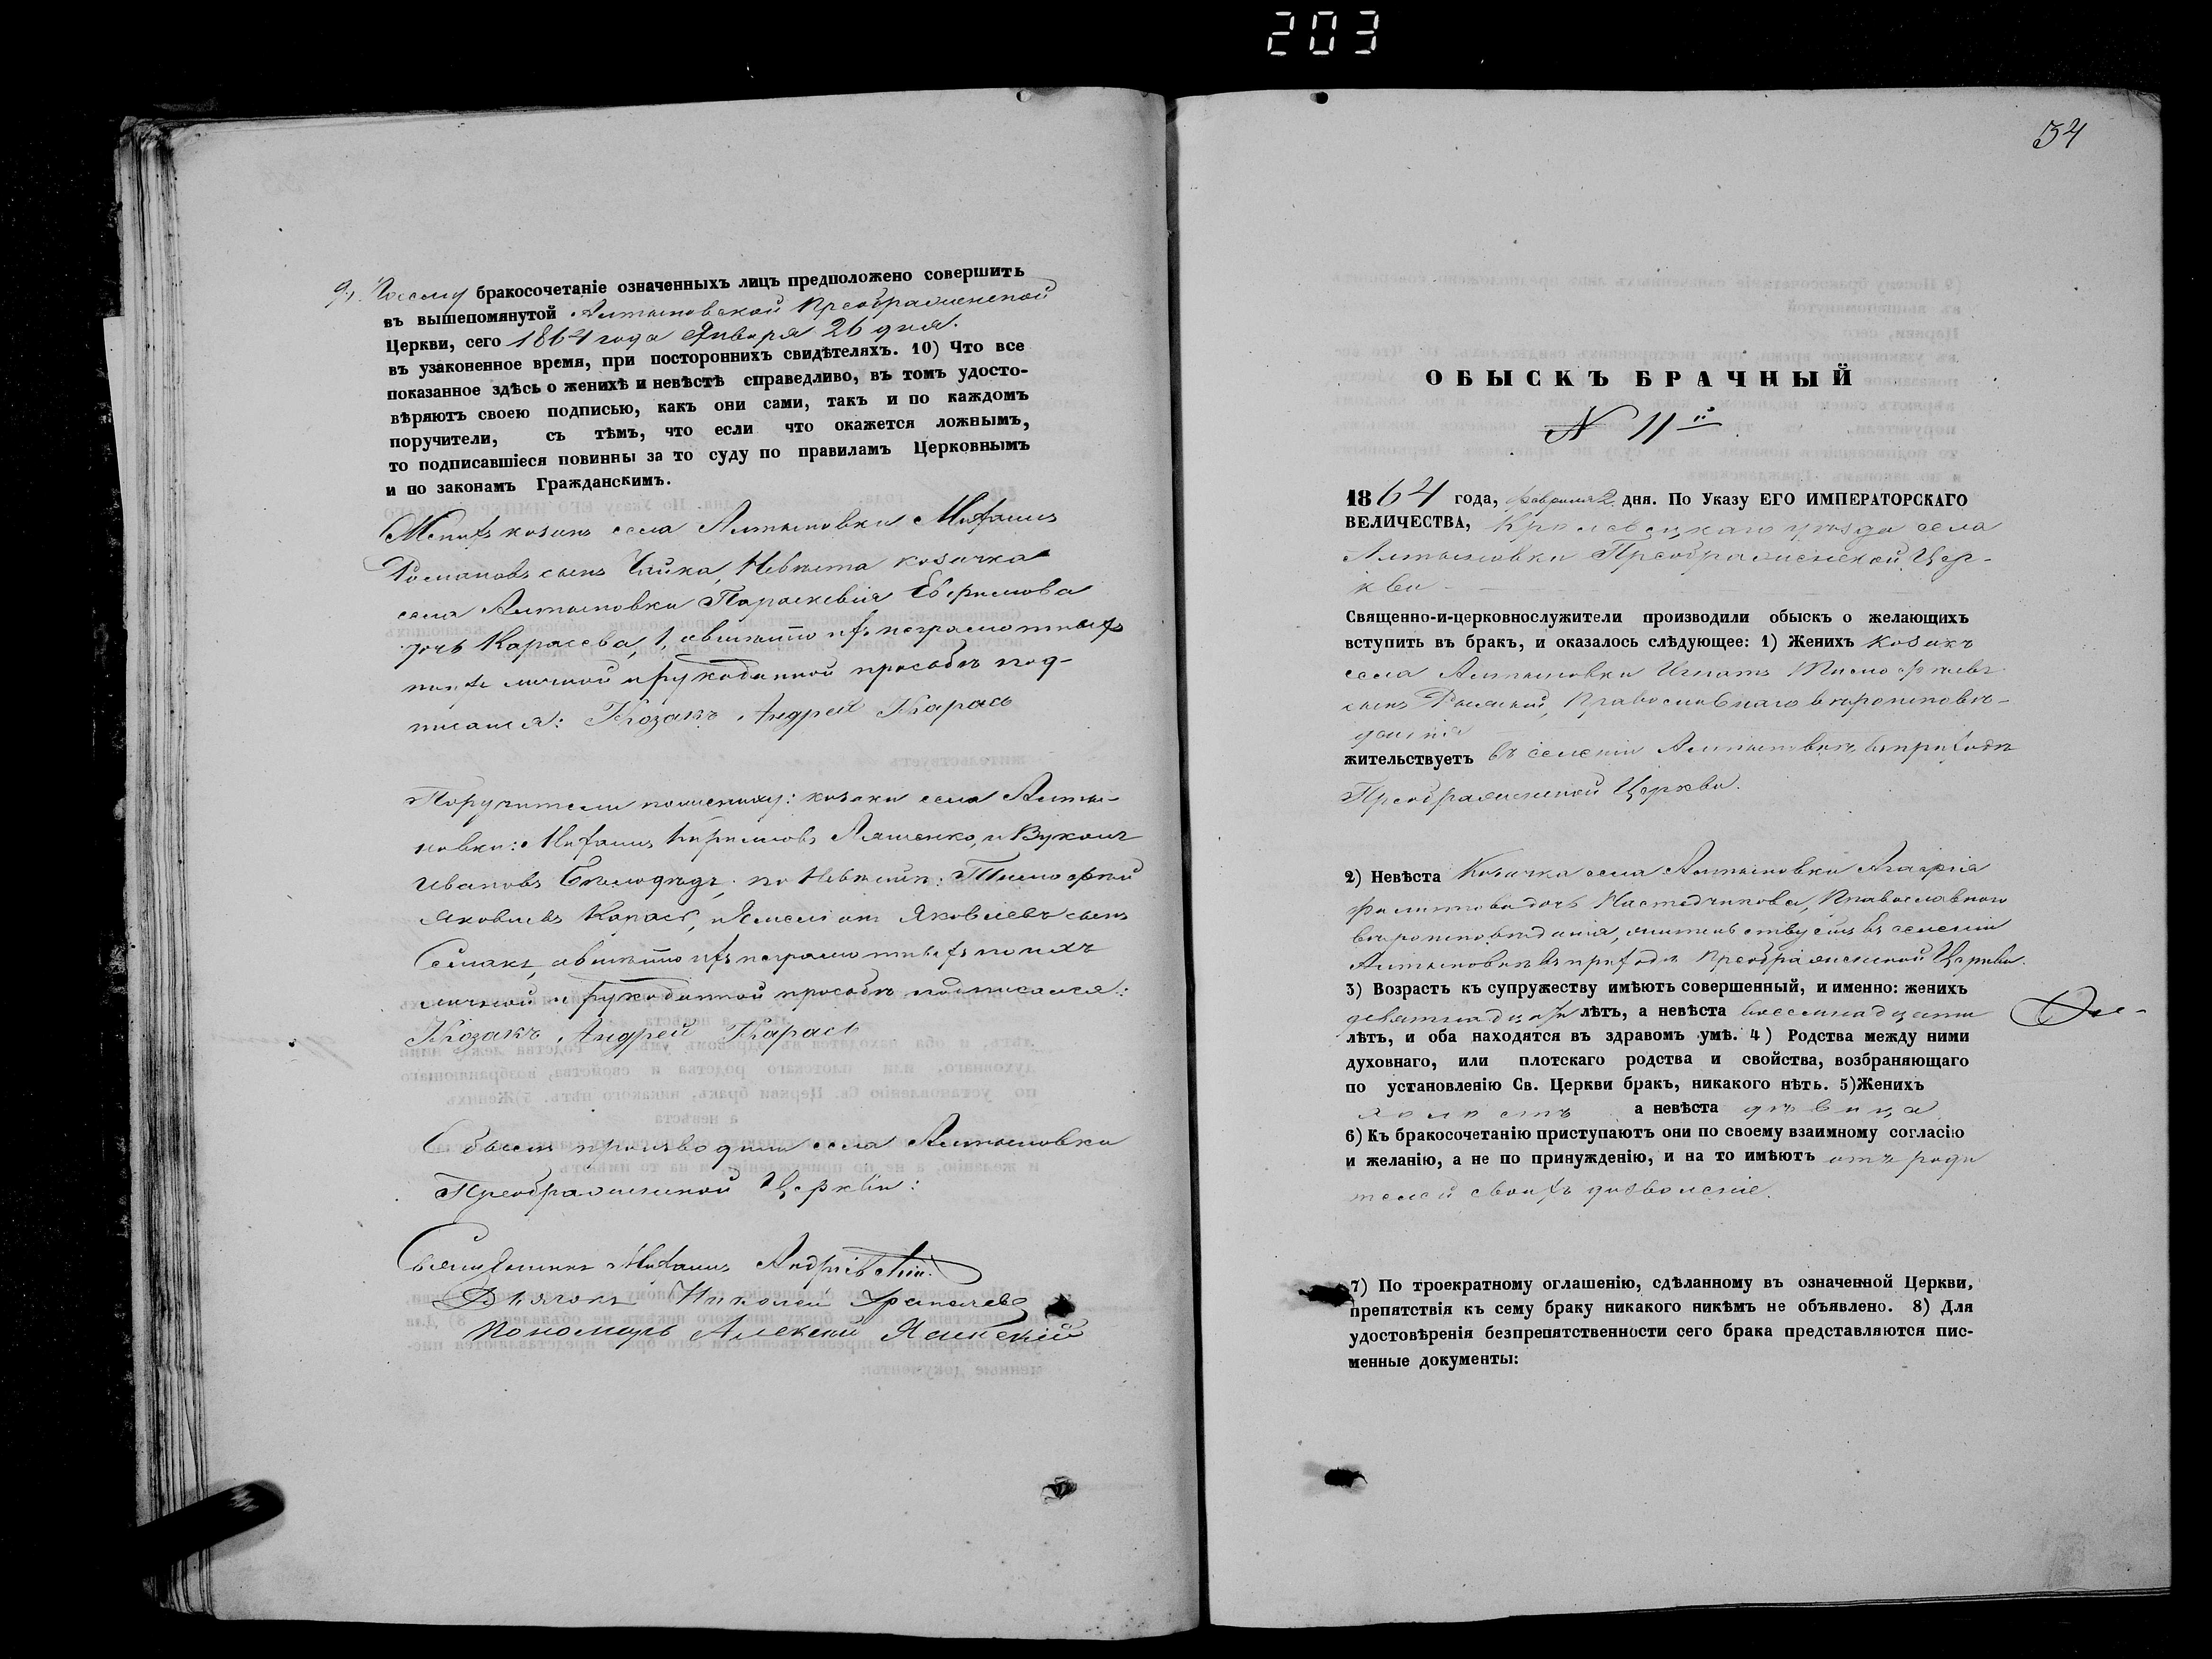 203
9). Посему бракосочетаніе означенныхъ лицъ предположено совершить
въ вышепомянутой Алтыновской Преображенской
Церкви, сего 1864 года Января 26 дня.
въ узаконенное время, при постороннихъ свидѣтеляхъ. 10) Что все
показанное здѣсь о женихѣ и невѣстѣ справедливо, въ томъ удосто-
вѣряютъ своею подписью, какъ они сами, такъ и по каждомъ
поручители, съ тѣмъ, что если что окажется ложнымъ,
то подписавшіеся повинны за то суду по правиламъ Церковнымъ
и по законамъ Гражданскимъ.
Женихъ козакъ села Алтыновки Михаилъ
Романовъ сынъ Чайка, Невѣста козачка
села Алтыновки Параскевія Ефримова
дочь Карасева, а вмѣсто ихъ неграмотныхъ
по ихъ личной и рукоданной прозьбѣ под-
писался: Козакъ Андрей Карась
Поручители по жениху: козаки села Алты-
новки: Михаилъ Ляшенко, и Вуколъ
Ивановъ Бѣлодѣдъ, по Невѣстѣ: Тимофей
Яковлевъ Карась, и Яковлевъ сынъ
Семакъ, а вмѣсто ихъ неграмотныхъ по ихъ
личной и рукоданной прозьбѣ подписался:
Козакъ Андрей Карась
Обыскъ производили села Алтыновки
Преображенской Церкви:
Священникъ Михаилъ Андріевскій
Дьячокъ Николай
Пономарь Алексей
34
ОБЫСКЪ БРАЧНЫЙ
№ 11й
1864 года, февраля 2 дня. По Указу ЕГО ИМПЕРАТОРСКАГО
ВЕЛИЧЕСТВА, Кролевецкаго уѣзда села
Алтыновки Преображенской Цер-
кви
Священно-и-церковнослужители производили обыскъ о желающихъ
вступить въ бракъ, и оказалось слѣдующее: 1) Женихъ козакъ
села Алтыновки Игнатъ Тимофѣевъ
сынъ Православнаго вѣроисповѣ-
данія
жительствуетъ въ селеніи Алтыновкѣ въ приходѣ
Преображенской Церкви.
2) Невѣста Козачка села Алтыновки Агафія
Филиппова дочь Православнаго
вѣроисповѣданія, жительствуетъ въ селеніи
Алтыновкѣ въ приходѣ Преображенской Церкви.
3) Возрастъ къ супружеству имѣютъ совершенный, и именно: женихъ
девятнадцать лѣтъ, а невѣста восемнадцати
лѣтъ, и оба находятся въ здравомъ умѣ. 4) Родства между ними
духовнаго, или плотскаго родства и свойства, возбраняющаго
по установленію Св. Церкви бракъ, никакого нѣтъ. 5)Женихъ
холостъ а невѣста дѣвица
6) Къ бракосочетанію приступаютъ они по своему взаимному согласію
и желанію, а не по принужденію, и на то имѣютъ отъ роди
телей своихъ дозволеніе.
7) По троекратному оглашенію, сдѣланному въ означенной Церкви,
препятствія къ сему браку никакого никѣмъ не объявлено. 8) Для
удостовѣренія безпрепятственности сего брака представляются пис-
менные документы: